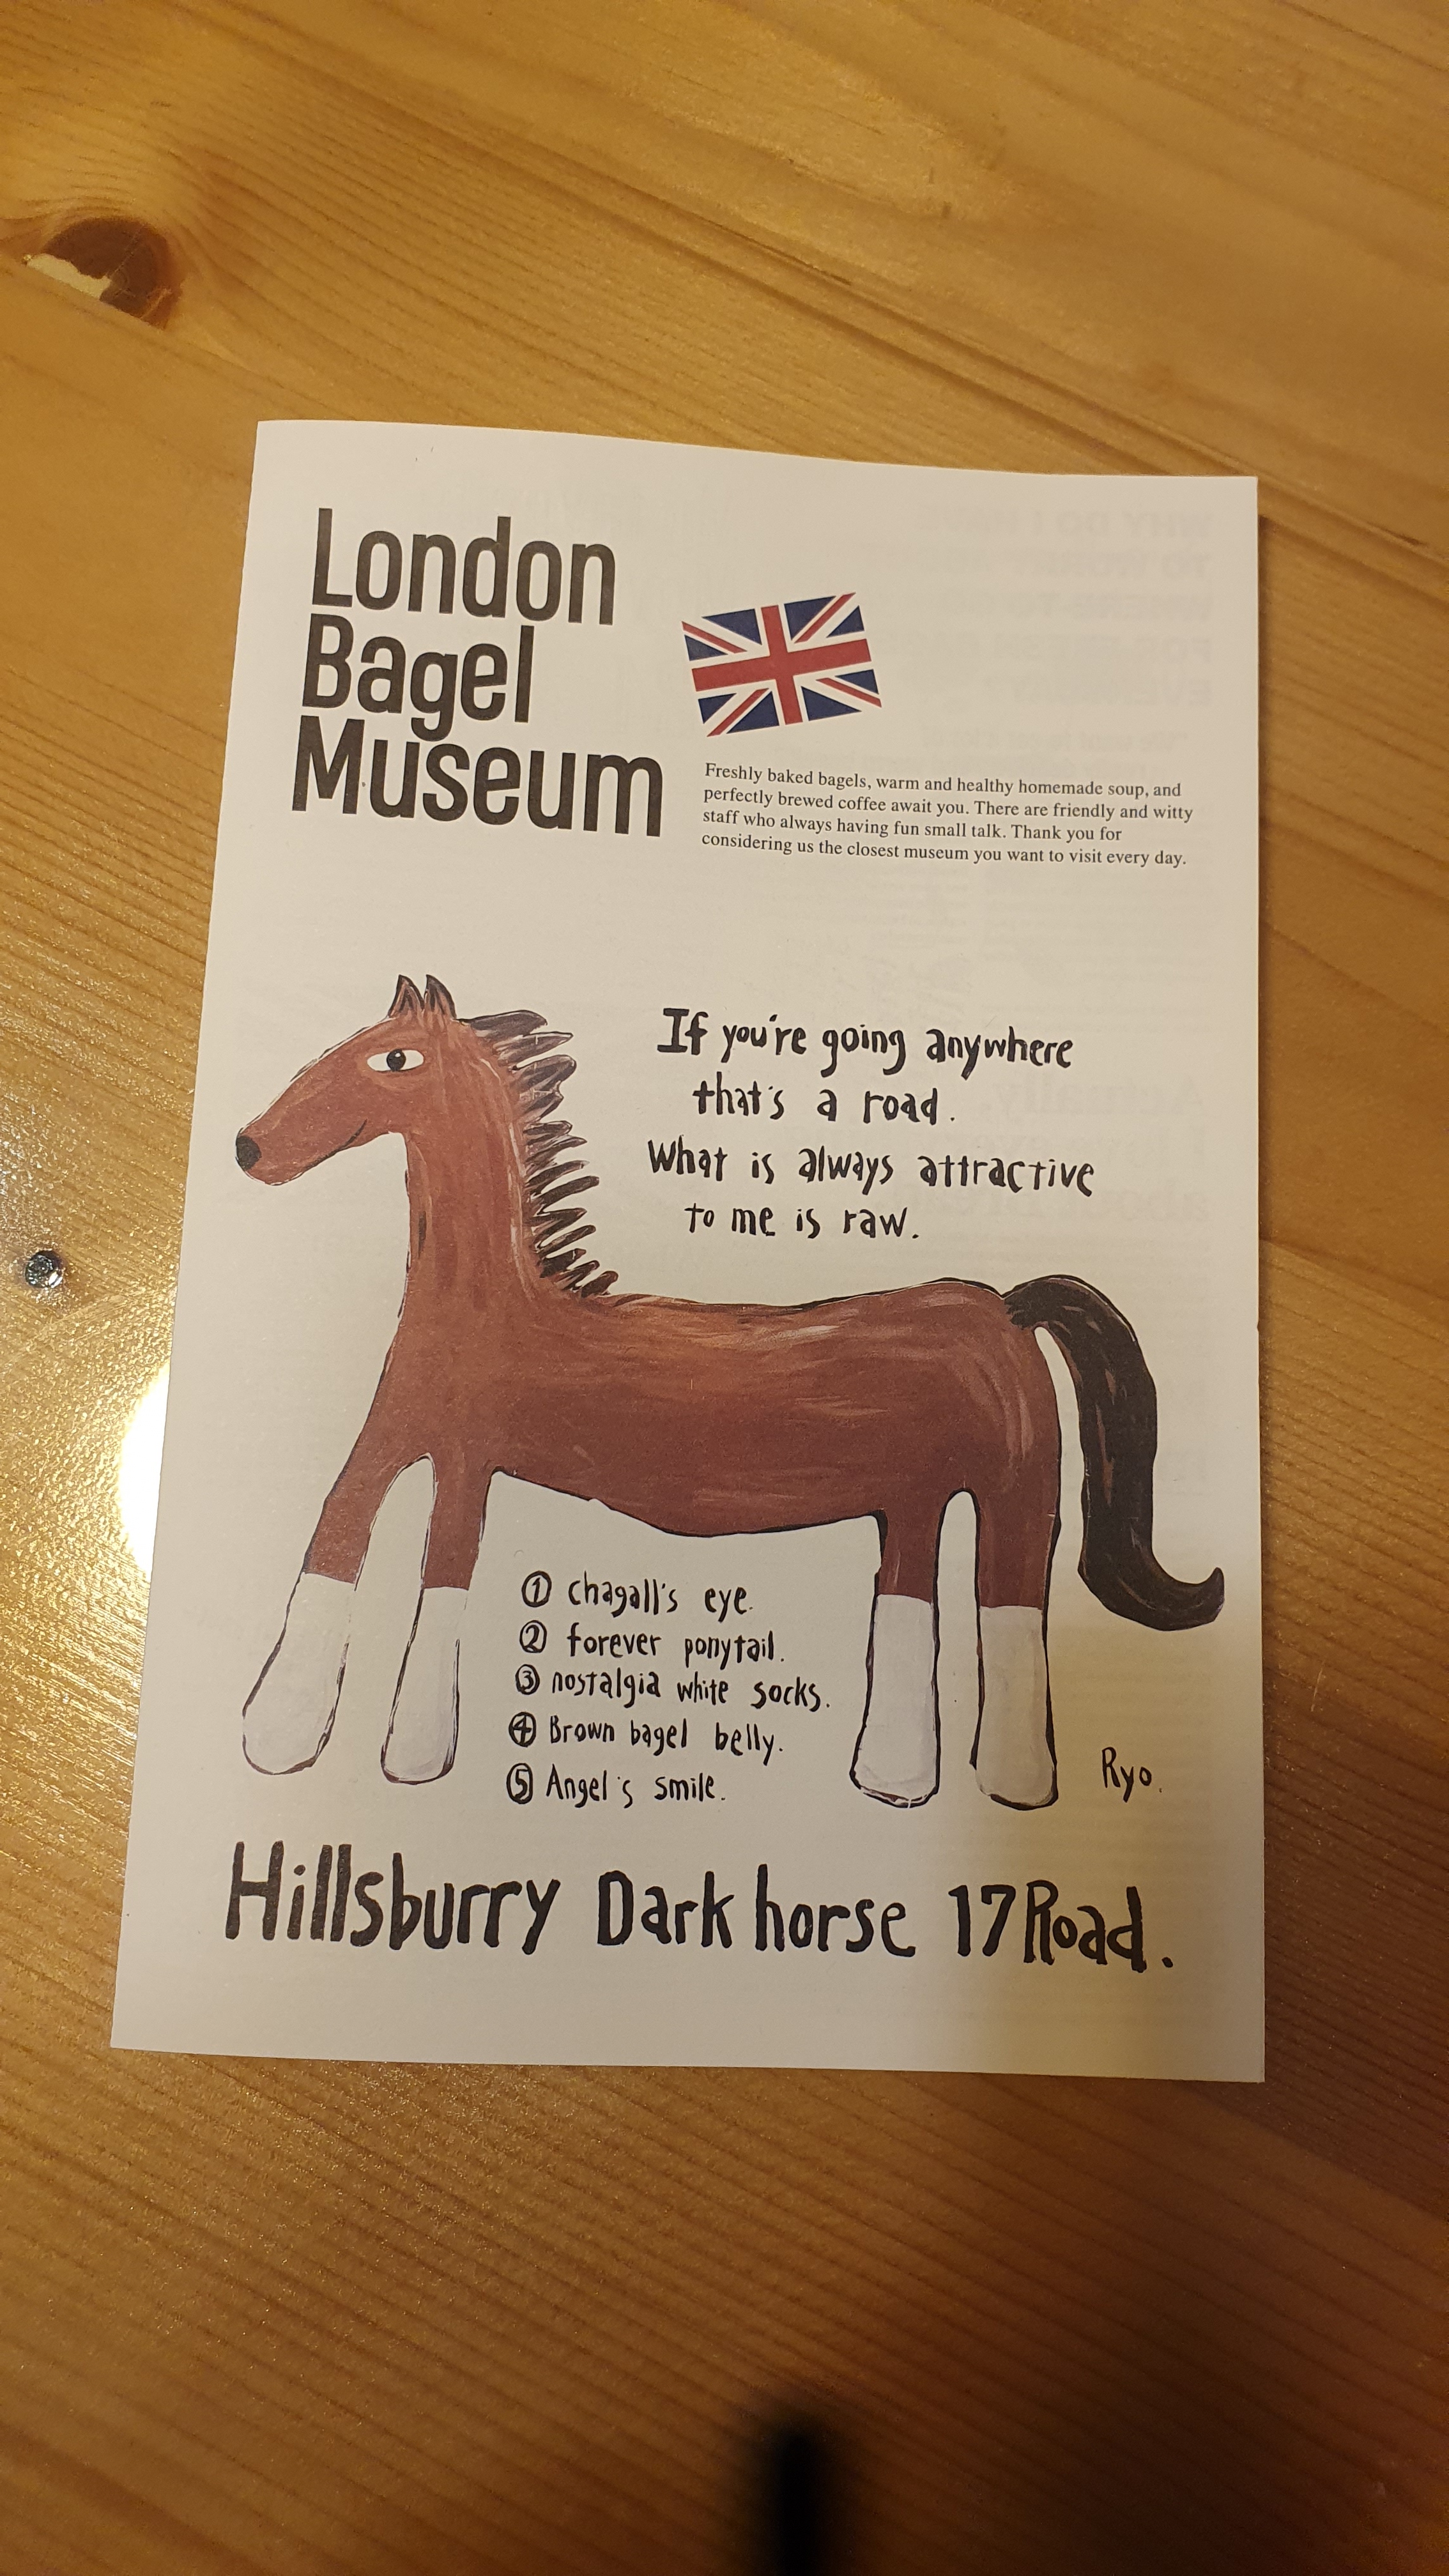 London
Bagel
Museum
Freshly baked bagels, warm and healthy homemade soup, and
perfectly brewed coffee await you. There are friendly and witty
staff who always having fun small talk. Thank you for
considering us the closest museum you want to visit every day.
If you're going anywhere
that's a road.
What is always attractive
to me is raw.
① chagall's eye.
② forever ponytail.
③ nostalgia white socks.
④ Brown bagel belly.
⑤ Angel's smile.
Ryo.
Hillsburry Dark horse 17 Road.